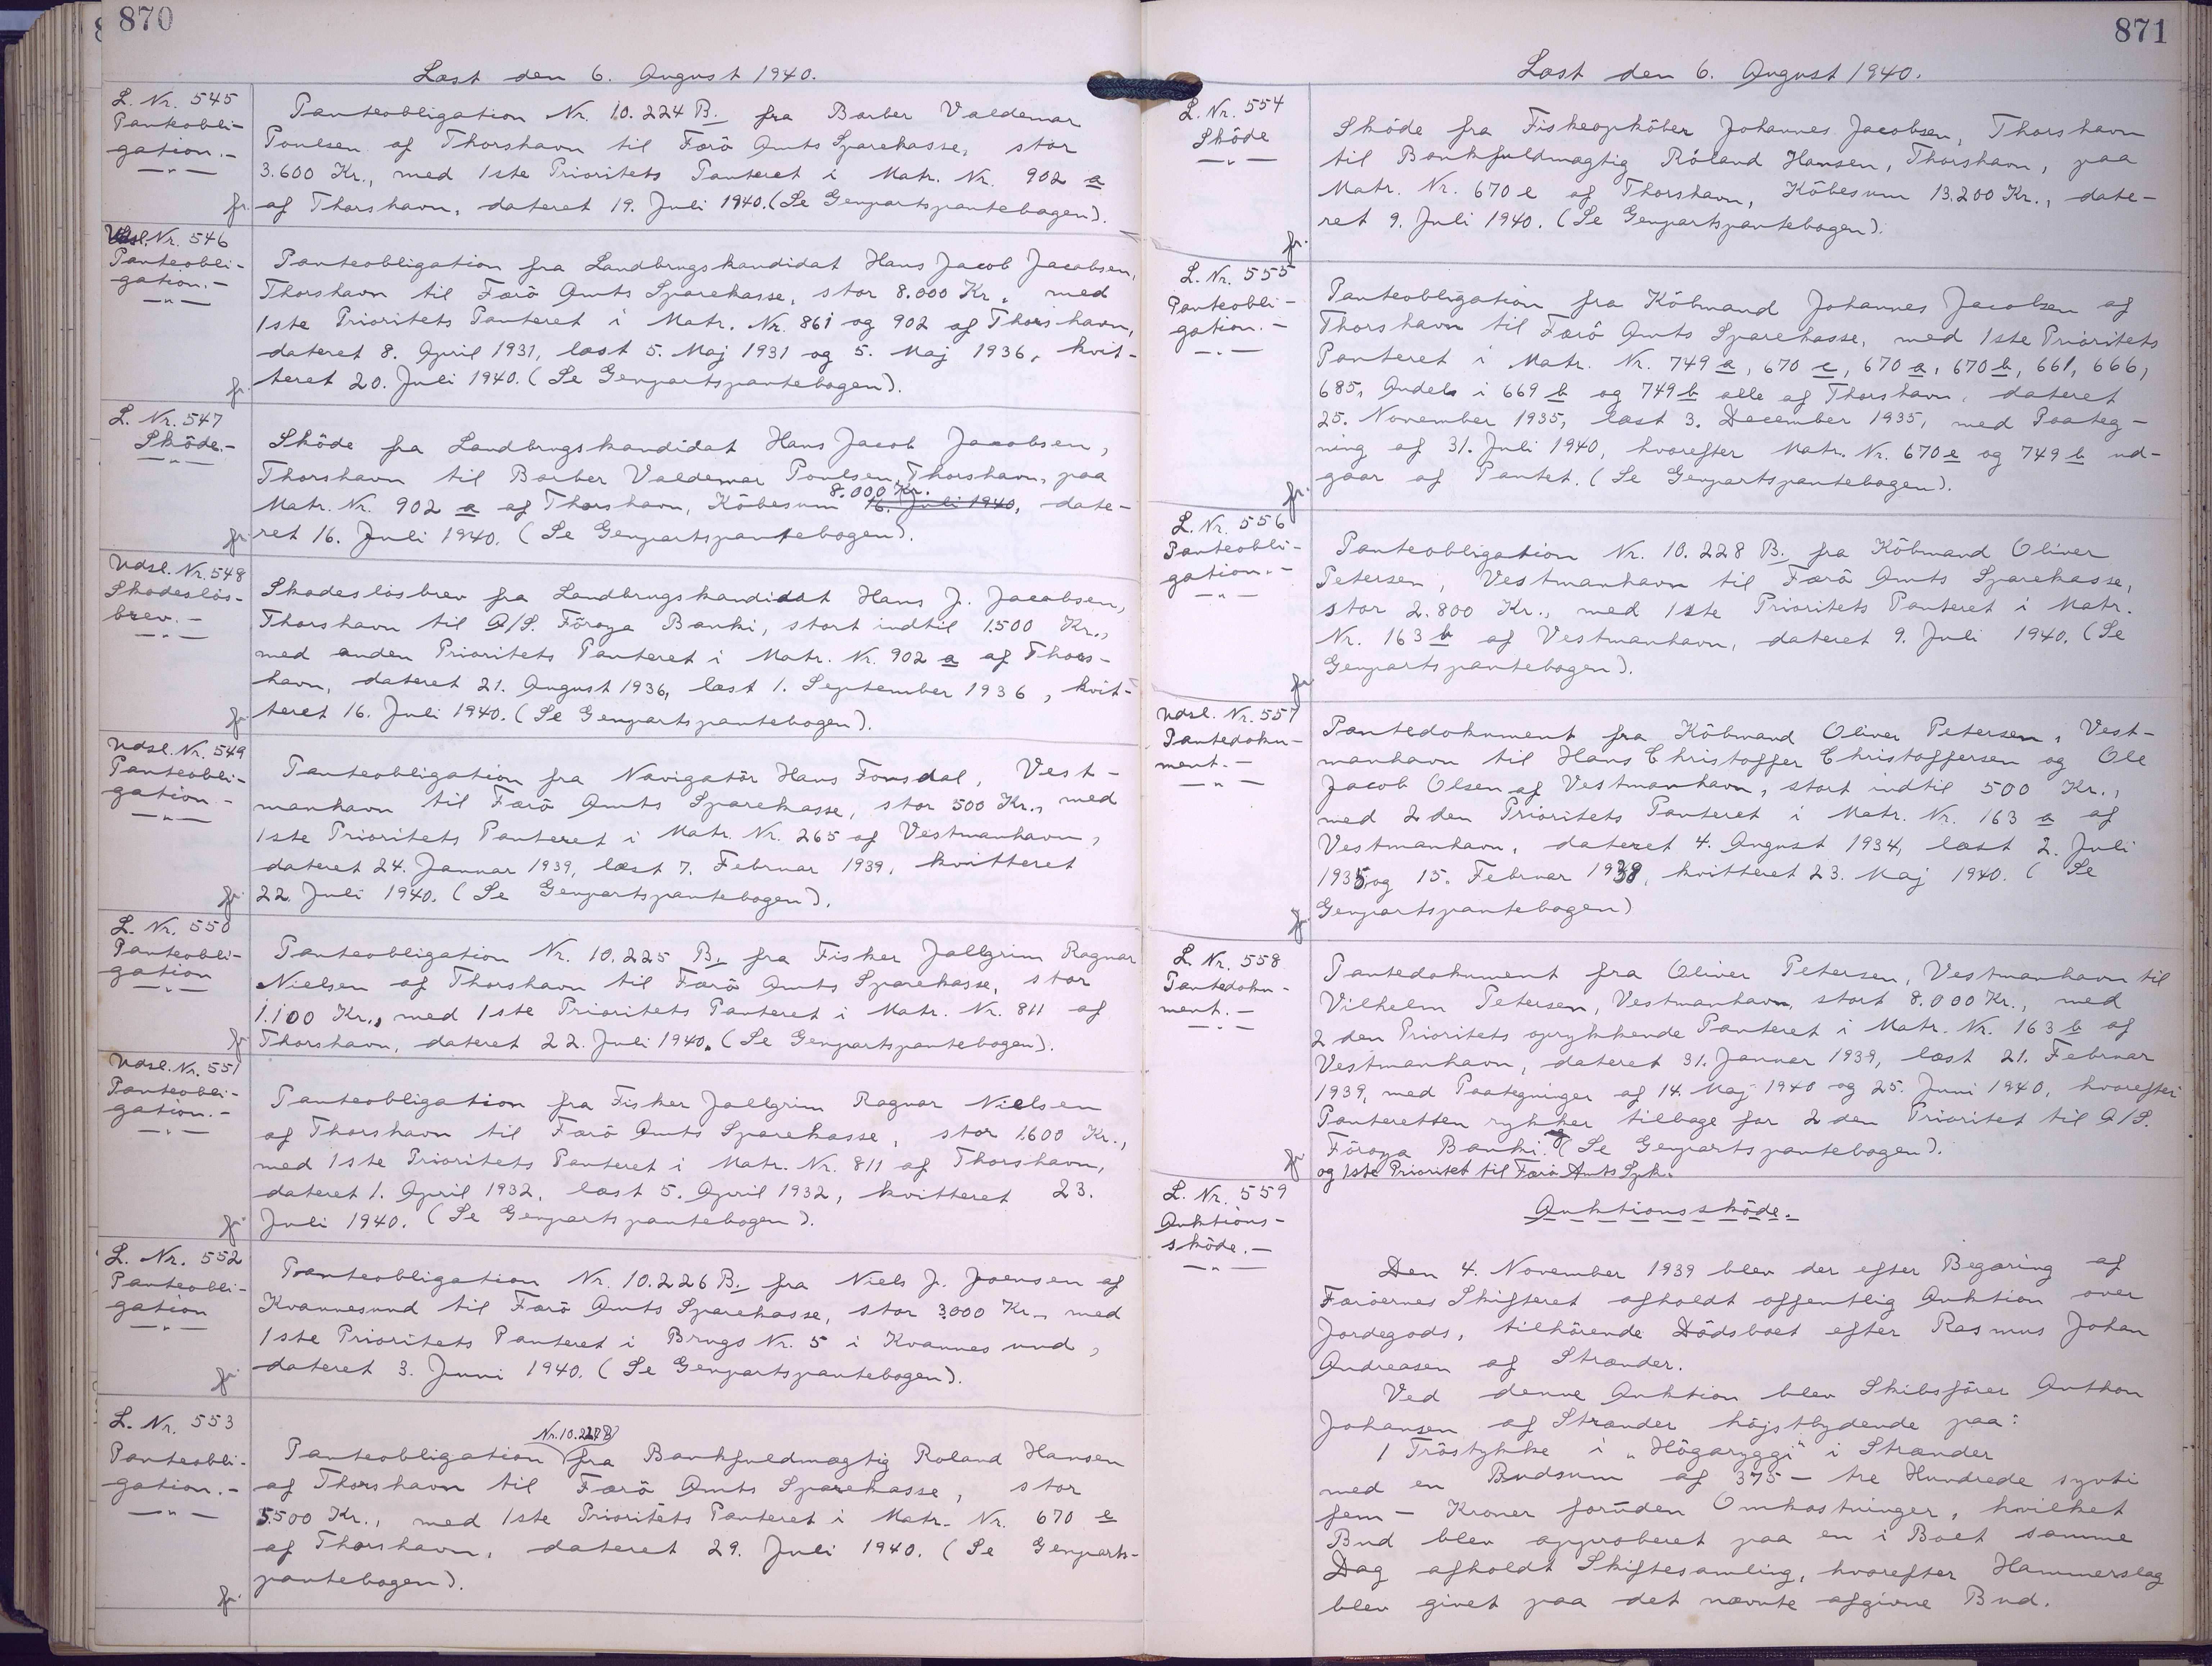 870
Læst den 6. August 1940.
L. Nr. 545
Panteobli-
gation.-
Panteobligation Nr. 10.224 B. fra Barber Valdemar
Poulsen af Thorshavn til Færö Amts Sparekasse, stor
3.600 Kr., med 1ste Prioritets Panteret i Matr. Nr. 902 a
af Thorshavn, dateret 19. Juli 1940. (Se Genpartspantebogen).
Udsl. Nr. 546
Panteobli-
gation.-
Panteobligation fra Landbrugskandidat Hans Jacob Jacobsen,
Thorshavn til Færö Amts Sparekasse, stor 8.000 Kr., med
1ste Prioritets Panteret i Matr. Nr. 861 og 902 af Thorshavn,
dateret 8. April 1931, læst 5. Maj 1931 og 5. Maj 1936, kvit-
teret 20. Juli 1940. (Se Genpartspantebogen).
L. Nr. 547
Sköde.-
Sköde fra Landbrugskandidat Hans Jacob Jacobsen,
Thorshavn til Barber Valdemar Poulsen, Thorshavn, paa
8.000 Kr.
Matr. Nr. 902 a af Thorshavn, Köbesum 16. Juli 1940, date-
ret 16. Juli 1940. (Se Genpartspantebogen).
Udsl. Nr. 548
Skadeslös-
brev.-
Skadeslösbrev fra Landbrugskandidat Hans J. Jacobsen,
Thorshavn til A/S. Föroya Banki, stort indtil 1.500 Kr.,
med anden Prioritets Panteret i Matr. Nr. 902 a af Thors-
havn, dateret 21. August 1936, læst 1. September 1936, kvit-
teret 16. Juli 1940. (Se Genpartspantebogen).
Udsl. Nr. 549
Panteobli-
gation.-
Panteobligation fra Navigatör Hans Fonsdal, Vest-
manhavn til Færö Amts Sparekasse, stor 500 Kr., med
1ste Prioritets Panteret i Matr. Nr. 265 af Vestmanhavn,
dateret 24. Januar 1939, læst 7. Februar 1939, kvitteret
22. Juli 1940. (Se Genpartspantebogen).
L. Nr. 550
Panteobli-
gation
Panteobligation Nr. 10.225 B. fra Fisker Jallgrim Ragnar
Nielsen af Thorshavn til Færö Amts Sparekasse, stor
1.100 Kr., med 1ste Prioritets Panteret i Matr. Nr. 811 af
Thorshavn, dateret 22. Juli 1940. (Se Genpartspantebogen).
Udsl. Nr. 551
Panteobli-
gation.-
Panteobligation fra Fisker Jallgrim Ragnar Nielsen
af Thorshavn til Færö Amts Sparekasse, stor 1.600 Kr.,
med 1ste Prioritets Panteret i Matr. Nr. 811 af Thorshavn,
dateret 1. April 1932, læst 5. April 1932, kvitteret 23.
Juli 1940. (Se Genpartspantebogen).
L. Nr. 552
Panteobli-
gation
Panteobligation Nr. 10.226 B. fra Niels J. Joensen af
Kvannesund til Færö Amts Sparekasse, stor 3.000 Kr., med
1ste Prioritets Panteret i Brugs Nr. 5 i Kvannesund,
dateret 3. Juni 1940. (Se Genpartspantebogen).
L. Nr. 553
Panteobli-
gation.-
Nr. 10.227 B
Panteobligation fra Bankfuldmægtig Roland Hansen
af Thorshavn til Færö Amts Sparekasse, stor
5.500 Kr., med 1ste Prioritets Panteret i Matr. Nr. 670 e
af Thorshavn, dateret 29. Juli 1940. (Se Genparts-
pantebogen).
871
Læst den 6. August 1940.
L. Nr. 554
Sköde
Sköde fra Fiskeopköber Johannes Jacobsen, Thorshavn
til Bankfuldmægtig Róland Hansen, Thorshavn, paa
Matr. Nr. 670 e af Thorshavn, Köbesum 13.200 Kr., date-
ret 9. Juli 1940. (Se Genpartspantebogen).
L. Nr. 555
Panteobli-
gation.-
Panteobligation fra Köbmand Johannes Jacobsen af
Thorshavn til Færö Amts Sparekasse, med 1ste Prioritets
Panteret i Matr. Nr. 749 a, 670 c, 670 a, 670 b, 661, 666,
685, Andels i 669 b og 749 b alle af Thorshavn, dateret
25. November 1935, læst 3. December 1935, med Paateg-
ning af 31. Juli 1940, hvorefter Matr. Nr. 670 e og 749 b ud-
gaar af Pantet. (Se Genpartspantebogen).
L. Nr. 556
Panteobli-
gation.-
Panteobligation Nr. 10.228 B. fra Köbmand Oliver
Petersen, Vestmanhavn til Færö Amts Sparekasse,
stor 2.800 Kr., med 1ste Prioritets Panteret i Matr.
Nr. 163 b af Vestmanhavn, dateret 9. Juli 1940. (Se
Genpartspantebogen).
Udsl. Nr. 557
Pantedoku-
ment.-
Pantedokument fra Köbmand Oliver Petersen, Vest-
manhavn til Hans Christoffer Christoffersen og Ole
Jacob Olsen af Vestmanhavn, stort indtil 500 Kr.,
med 2den Prioritets Panteret i Matr. Nr. 163 a af
Vestmanhavn, dateret 4. August 1934, læst 2. Juli
1935 og 15. Februar 1938, kvitteret 23. Maj 1940. (Se
Genpartspantebogen)
L. Nr. 558
Pantedoku-
ment.-
Pantedokument fra Oliver Petersen, Vestmanhavn til
Vilhelm Petersen, Vestmanhavn, stort 8.000 Kr., med
2den Prioritets oprykkende Panteret i Matr. Nr. 163 b af
Vestmanhavn, dateret 31. Januar 1939, læst 21. Februar
1939, med Paategninger af 14. Maj 1940 og 25. Juni 1940, hvorefter
Panteretten rykker tilbage for 2den Prioritet til A/S.
Föroya Banki. (Se Genpartspantebogen).
og 1ste Prioritet til Færö Amts Spk.
L. Nr. 559
Auktions-
sköde.-
Auktionssköde.
Den 4. November 1939 blev der efter Begæring af
Færöernes Skifteret afholdt offentlig Auktion over
Jordegods, tilhörende Dödsboet efter Rasmus Johan
Andreasen af Strænder.
Ved denne Auktion blev Skibsförer Anthon
Johansen af Strænder höjstbydende paa:
1 Tröstykke i "Högaryggi" i Strænder
med en Budsum af 375 - tre Hundrede syvti
fem - Kroner foruden Omkostninger, hvilket
Bud blev approberet paa en i Boet samme
Dag afholdt Skiftesamling, hvorefter Hammerslag
blev givet paa det nævnte afgivne Bud.